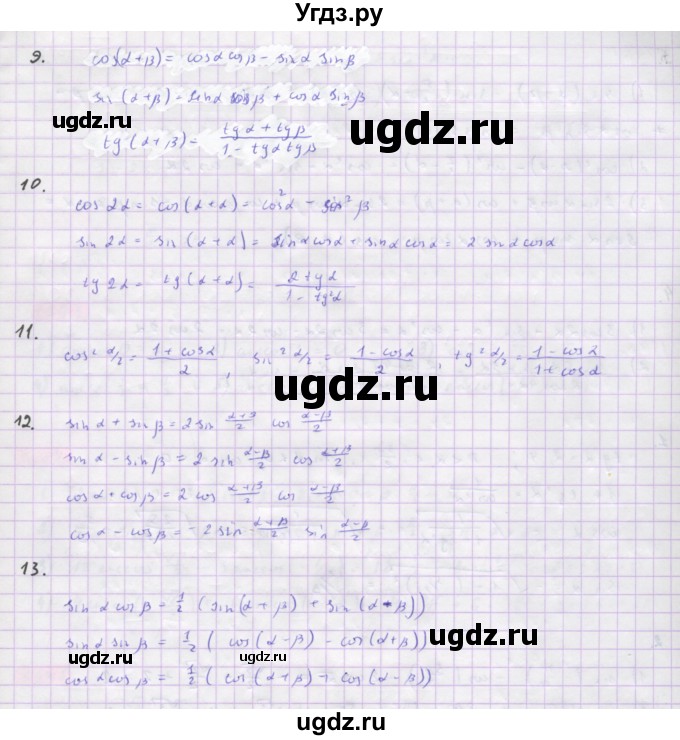 Угдз.ру
9. cos(α+β) = cosα cosβ - sinα sinβ
sin(α+β) - sinα cosβ + cosα sinβ
ugdz.ru
ugdz.ru
tg(α+β) = (tgα + tgβ)/(1 - tgα tgβ)
10.
cos 2α = cos(α+α) = cos²α - sin²β
ugdz.ru
sin 2α = sin(α+α) = sinα cosα + sinα cosα = 2 sinα cosα
tg 2α = tg(α+α) = 2tgα/(1 - tg²α)
11.
cos² α/2 = (1 + cosα)/2, sin² α/2 = (1 - cosα)/2, tg² α/2 = (1 - cosα)/(1 + cosα)
ugdz.ru
12. sinα + sinβ = 2 sin (α+β)/2 cos (α-β)/2
ugdz.ru
sinα - sinβ = 2 sin (α-β)/2 cos (α+β)/2
cosα + cosβ = 2 cos (α+β)/2 cos (α-β)/2
ugdz.ru
cosα - cosβ = -2 sin (α+β)/2 sin (α-β)/2
13.
sinα cosβ = 1/2 (sin(α+β) + sin(α-β))
ugdz.ru
sinα sinβ = 1/2 (cos(α-β) - cos(α+β))
ugdz.ru
ugdz.ru
cosα cosβ = 1/2 (cos(α+β) + cos(α-β))
ugdz.ru